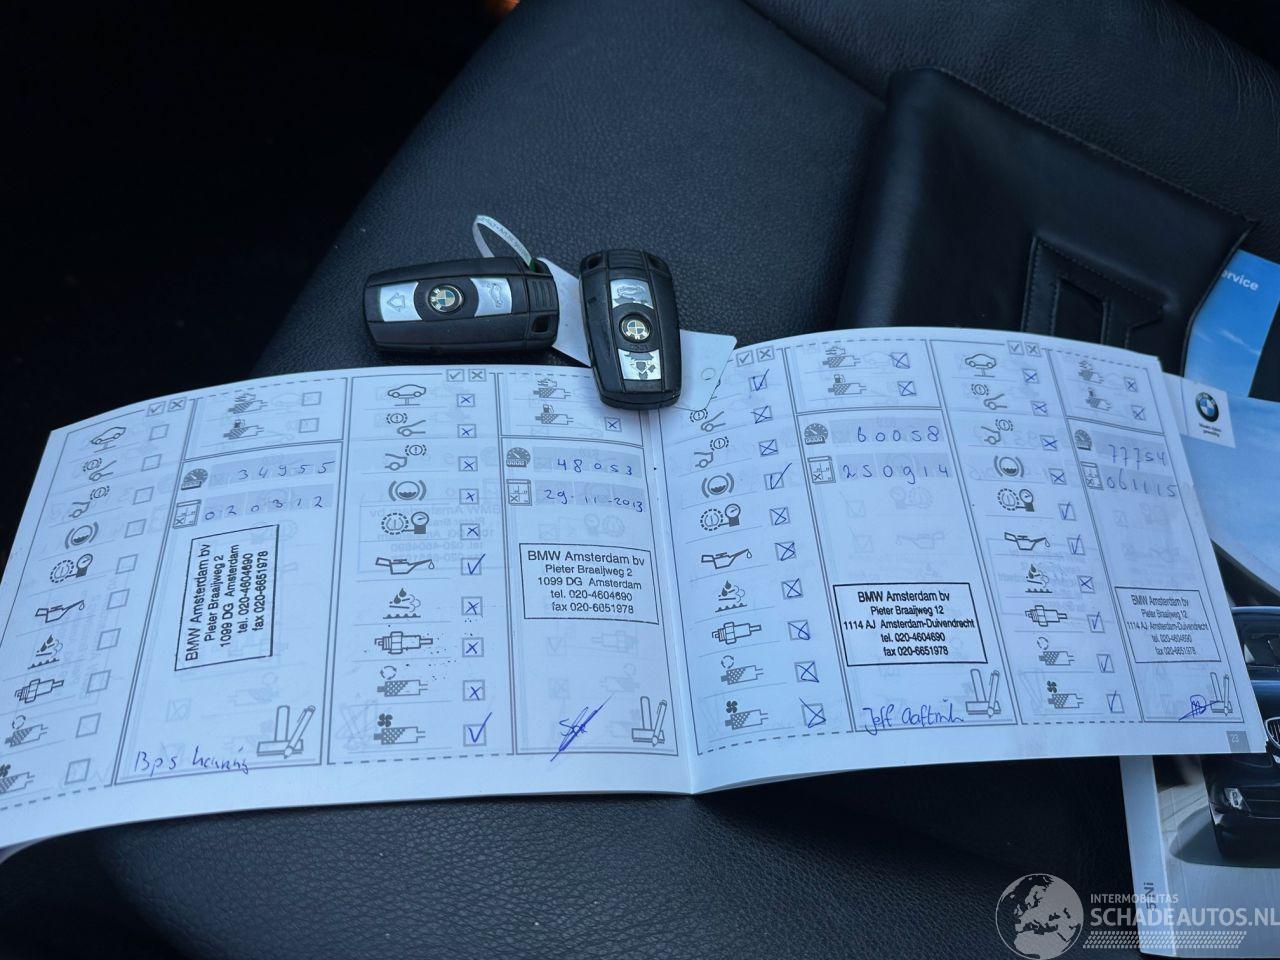 34955
020312
BMW Amsterdam bv
Pieter Braaijweg 2
1099 DG Amsterdam
tel. 020-4604690
fax 020-6651978
Bps
48053
29-11-2013
BMW Amsterdam bv
Pieter Braaijweg 2
1099 DG Amsterdam
tel. 020-4604690
fax 020-6651978
60058
250914
BMW Amsterdam bv
Pieter Braaijweg 12
1114 AJ Amsterdam-Duivendrecht
tel. 020-4604690
fax 020-6651978
Jeff
77754
061115
BMW Amsterdam bv
Pieter Braaijweg 12
1114 AJ Amsterdam-Duivendrecht
tel. 020-4604690
fax 020-6651978
23
INTERMOBILITAS
SCHADEAUTOS.NL